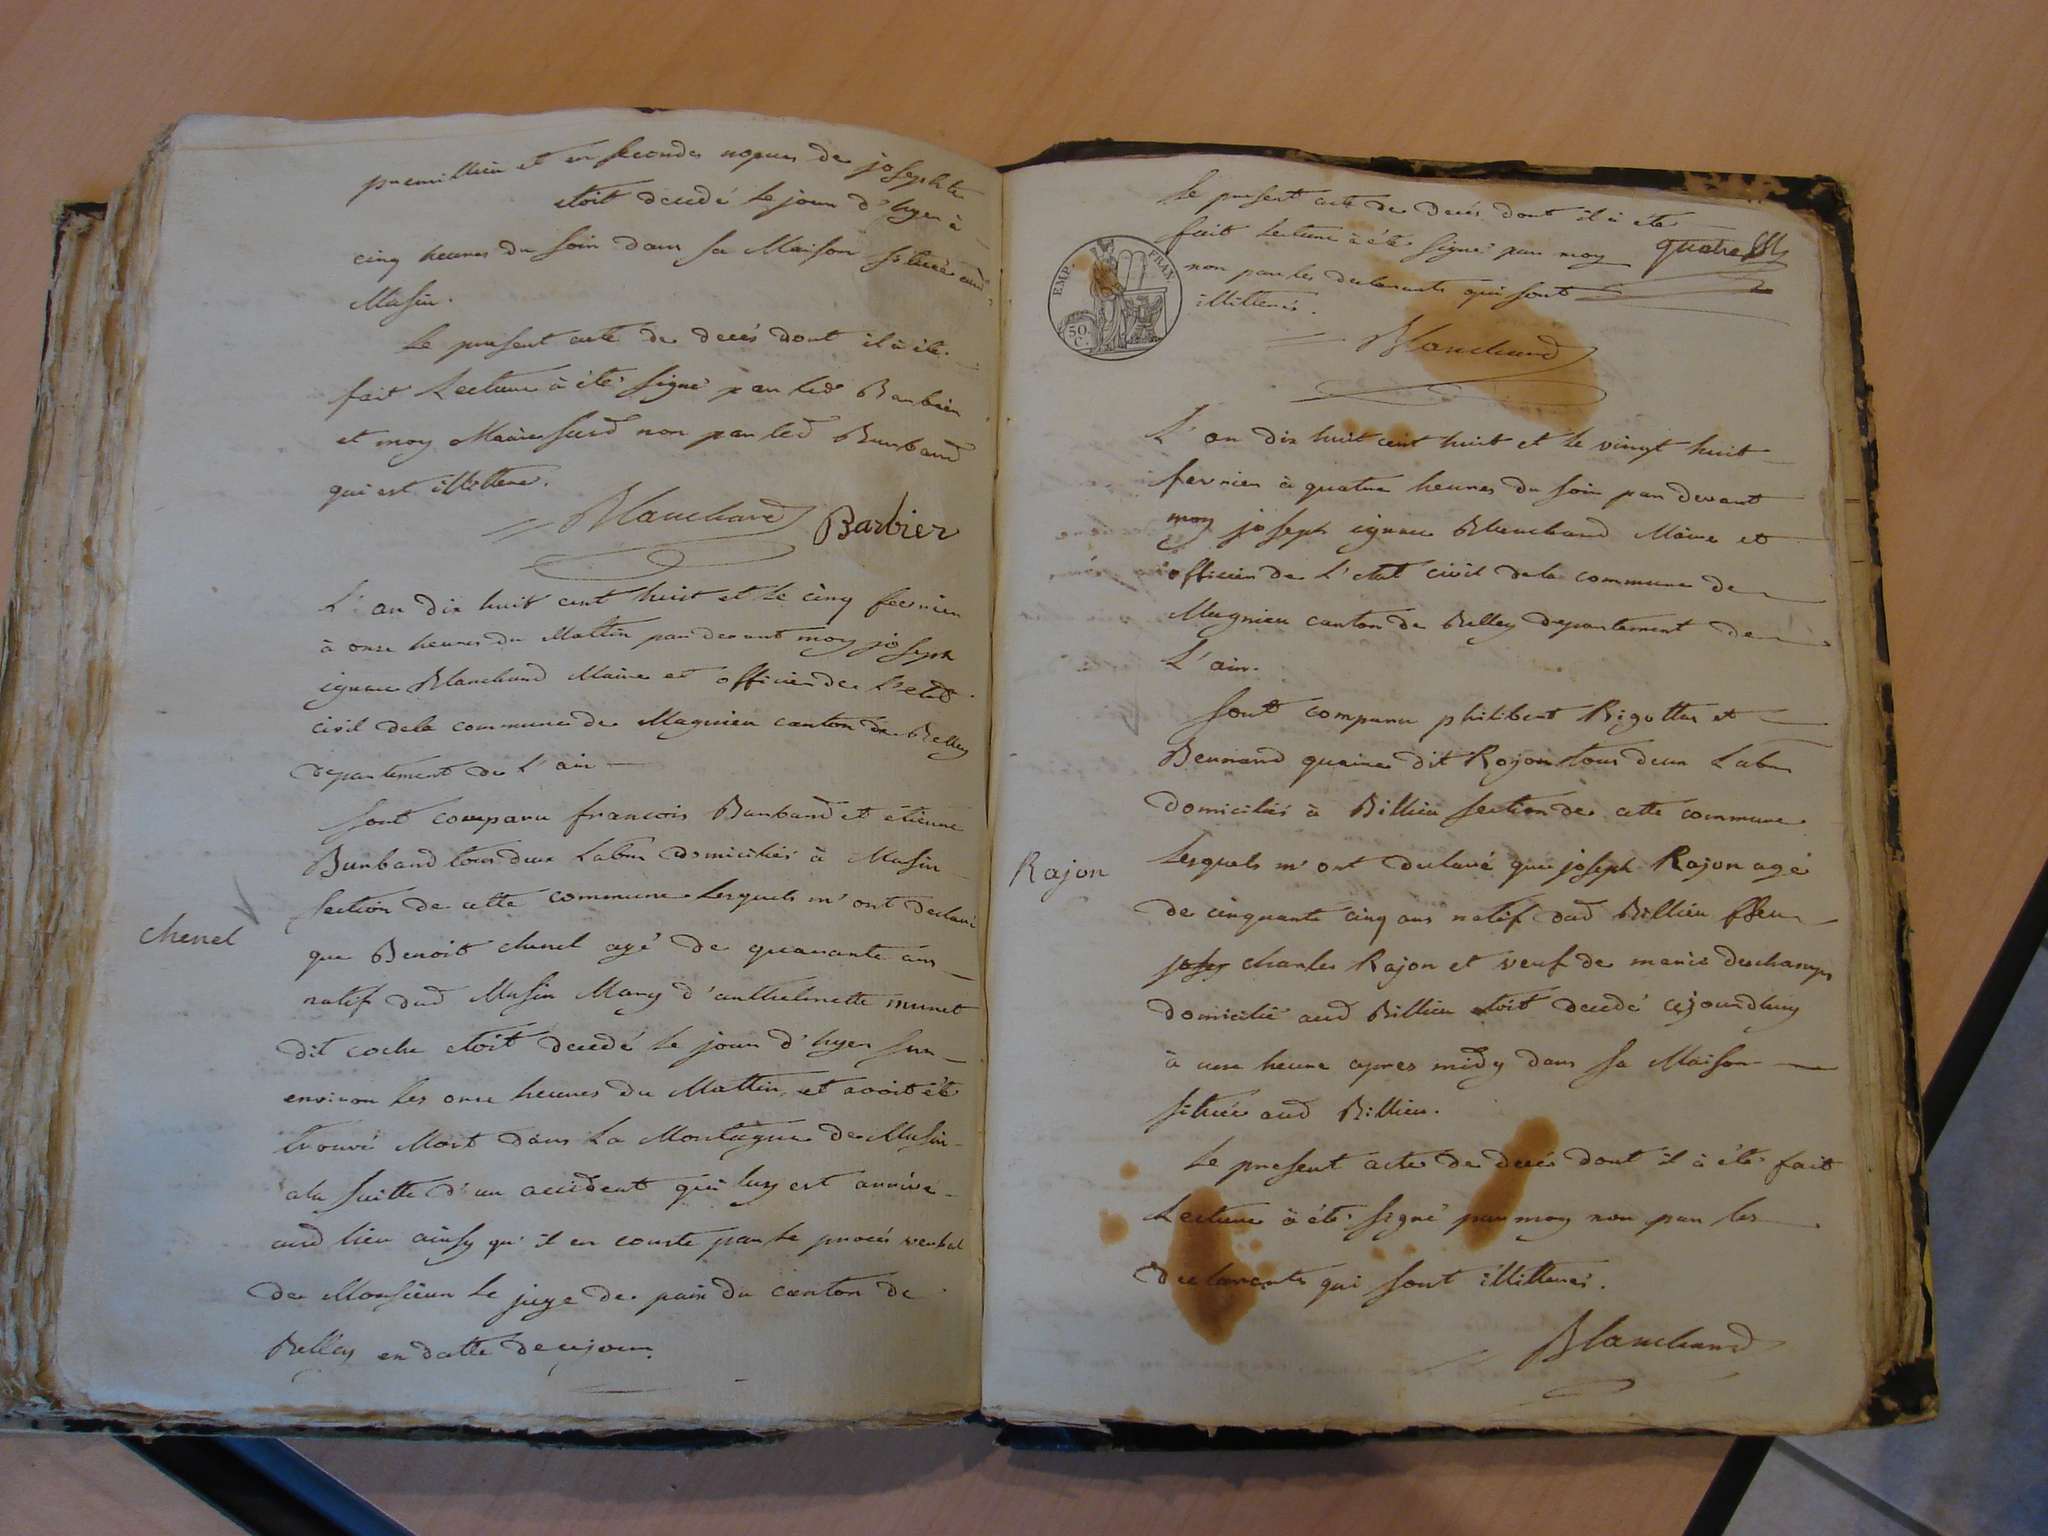 premillieu et en secondes nopces de josephte
étoit decedé le jour d'hyer à
cinq heures du soir dans sa Maison située aud
Musin.
Le present acte de decés dont il à été
fait Lecture à été signé par led Barbier
et moy Maire susd non par led Burband
qui est illittere.
Blanchard Barbier
L'an dix huit cent huit et le cinq fevrier
à onze heures du Mattin par devant moy joseph
ignace Blanchard Maire et officier de L'etat
civil dela commune de Magnieu canton de Belley
departement de L'ain
Sont comparu francois Burband et étienne
Burband tous deux Labrs domiciliés à Musin
section de cette commune Lesquels m'ont declaré
chenel
que Benoit chenel agé de quarante ans
natif dud Musin Mary d'anthelmette munet
dit coche étoit decedé le jour d'hyer sur
environ les onze heures du Mattin, et avoit été
trouvé Mort dans La Montagne de Musin
ala suitte d'un accident qui luy est arrivé
aud lieu ainsy qu'il en conste par le procés verbal
de Monsieur le juge de paix du canton de
Belley en datte de cejour.
Le present acte de decés dont il à été
fait Lecture à été signé par moy
non par les declarants qui sont
illitterés.
quatre
EMP. FRAN.
50.
C.
Blanchard
L'an dix huit cent huit et le vingt huit
fevrier à quatre heures du soir par devant
moy joseph ignace Blanchard Maire et
officier de L'etat civil dela commune de
Magnieu canton de Belley departement de
L'ain.
Sont comparu philibert Rigottes et
Bernard quaine dit Rojon tous deux Labrs
domiciliés à Billieu section de cette commune
Rajon
Lesquels m'ont declaré que joseph Rajon agé
de cinquante cinq ans natif dud Billieu ffeu
josep charles Rajon et veuf de marie deschamps
domicilié aud Billieu étoit decedé cejourdhuy
à une heure apres midy dans sa Maison
située aud Billieu.
Le present acte de decés dont il à été fait
Lecture à été signé par moy non par les
declarants qui sont illitterés.
Blanchard